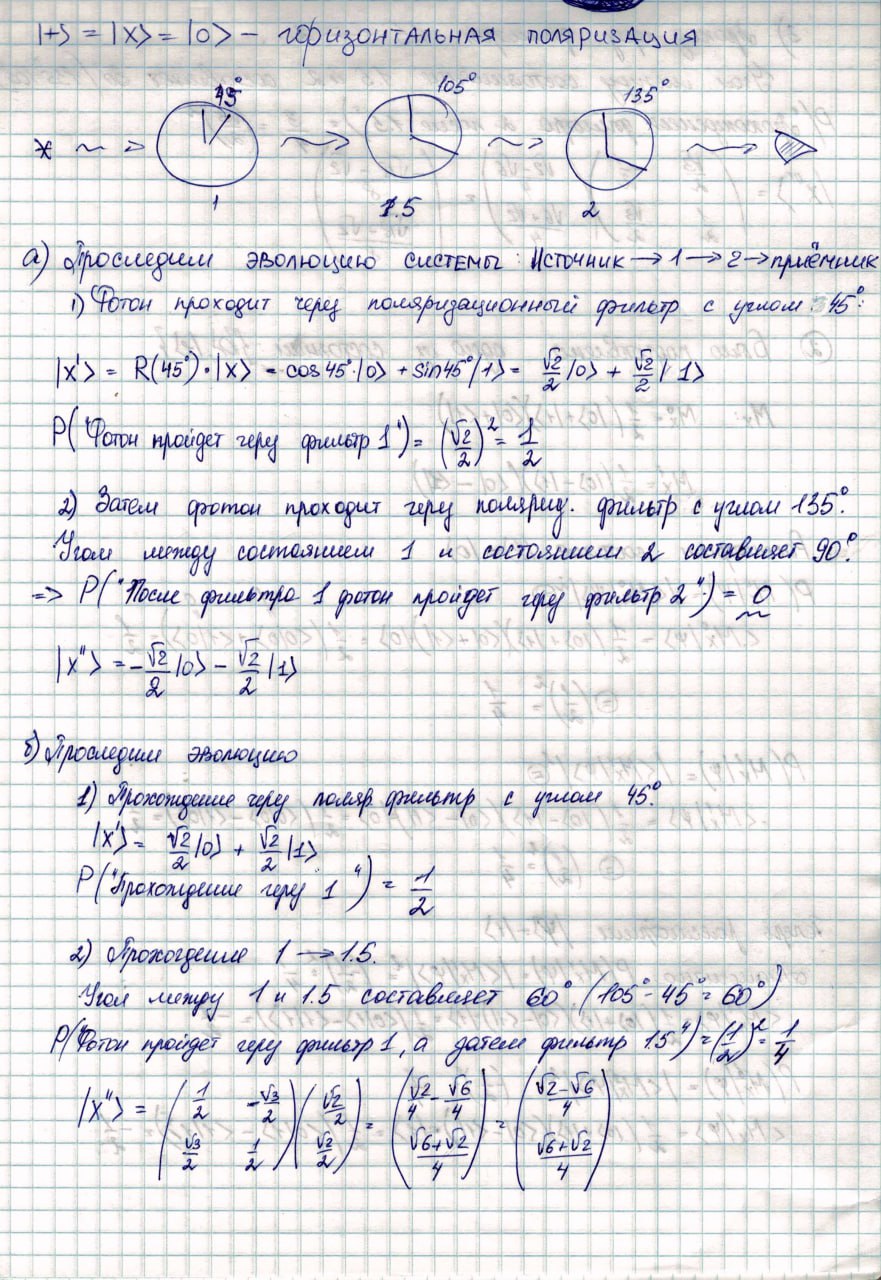 |+> = |x> = |0> – горизонтальная поляризация
45° 105° 135°
1 1.5 2
а) Проследим эволюцию системы: Источник → 1 → 2 → приёмник
1) Фотон проходит через поляризационный фильтр с углом 45°:
|x'> = R(45°)·|x> = cos45°|0> + sin45°|1> = √2/2 |0> + √2/2 |1>
P("Фотон пройдет через фильтр 1") = (√2/2)² = 1/2
2) Затем фотон проходит через поляриз. фильтр с углом 135°.
Угол между состоянием 1 и состоянием 2 составляет 90°.
=> P("После фильтра 1 фотон пройдет через фильтр 2") = 0
|x''> = -√2/2 |0> - √2/2 |1>
б) Проследим эволюцию
1) Прохождение через поляр. фильтр с углом 45°.
|x'> = √2/2 |0> + √2/2 |1>
P("Прохождение через 1") = 1/2
2) Прохождение 1 → 1.5.
Угол между 1 и 1.5 составляет 60°. (105° - 45° = 60°)
P("Фотон пройдет через фильтр 1, а затем фильтр 1.5") = (1/2)² = 1/4
|x''> = (1/2 -√3/2; √3/2 1/2) (√2/2; √2/2) = (√2/4 - √6/4; (√6+√2)/4) = ((√2-√6)/4; (√6+√2)/4)